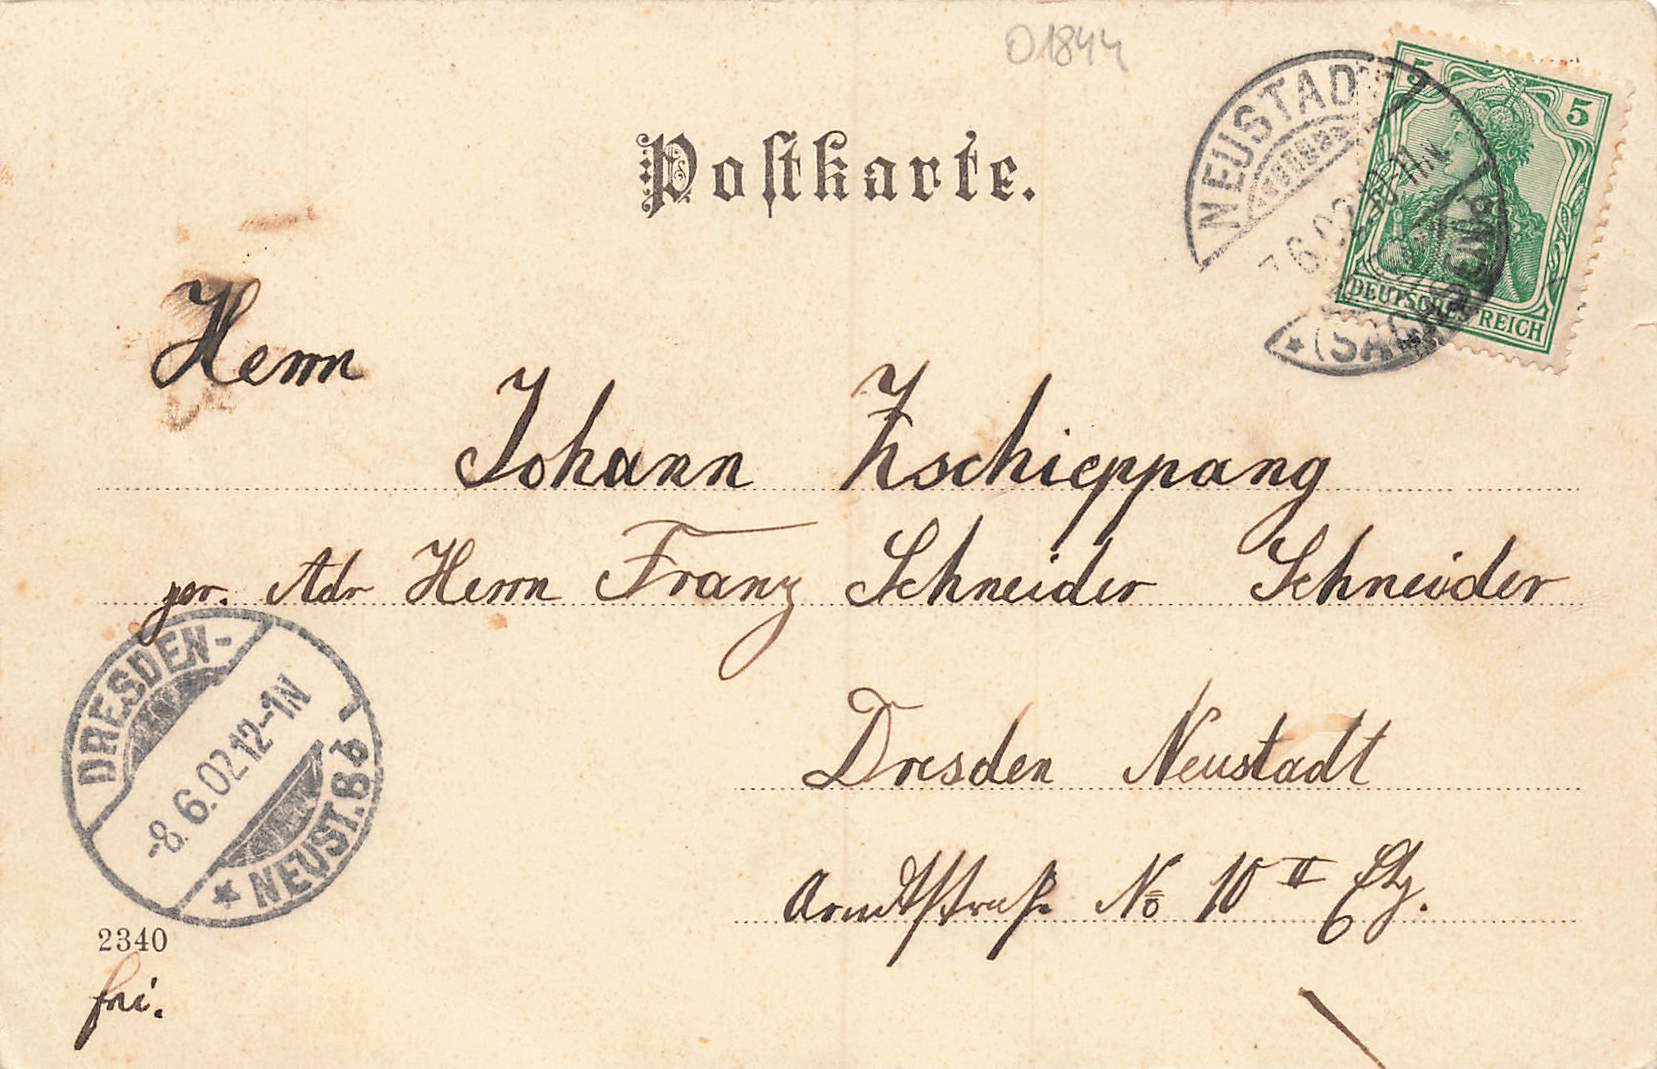 01844
Postkarte.
NEUSTADT
5
5
DEUTSCHES REICH
(SACHSEN)
Herrn
Johann Zschieppang
per. Adr Herrn Franz Schneider Schneider
DRESDEN-
-8.6.02.12-1N
NEUST. 6 b
Dresden Neustadt
Arndtstraße No 10 II Etg.
2340
frei.